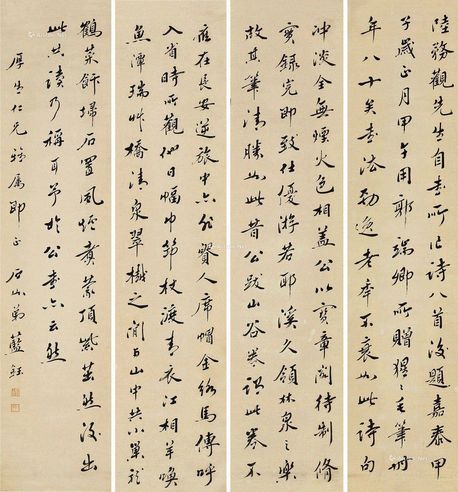 陸務觀先生自書所作詩八首後題嘉泰甲
子歲正月甲午用郭端卿所贈猩〻毛筆時
年八十矣書法勁逸老年不衰如此詩句
冲淡全無煙火色相蓋公以寶章閣待制脩
實錄完即致仕優游若耶溪久領林泉之樂
故其筆清勝如此昔公跋山谷卷謂此卷不
應在長安逆旅中亦非賢人席帽金絡馬傳呼
入省時所觀他日幅巾筇杖渡青衣江相羊喚
魚潭瑞草橋清泉翠樾之間與山中共小巢龍
鶴菜飰掃石置風爐煮蒙頂紫茁然後出
此共讀乃稱耳予於公書亦云然
厚生仁兄雅屬即正 石山弟藍鈺